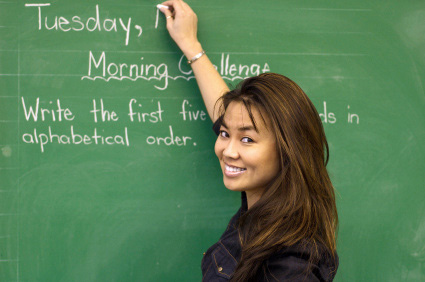 Tuesday,
Morning Challenge
Write the first five in
alphabetical order.